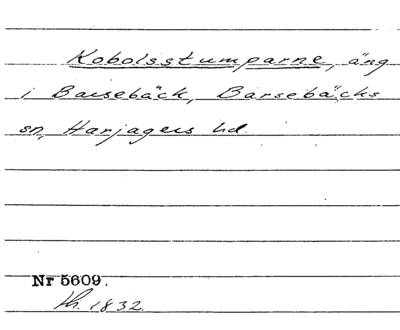 Kobolsstumparne, äng
i Barsebäck, Barsebäcks
sn, Harjagers hd.
Nr 5609.
1832